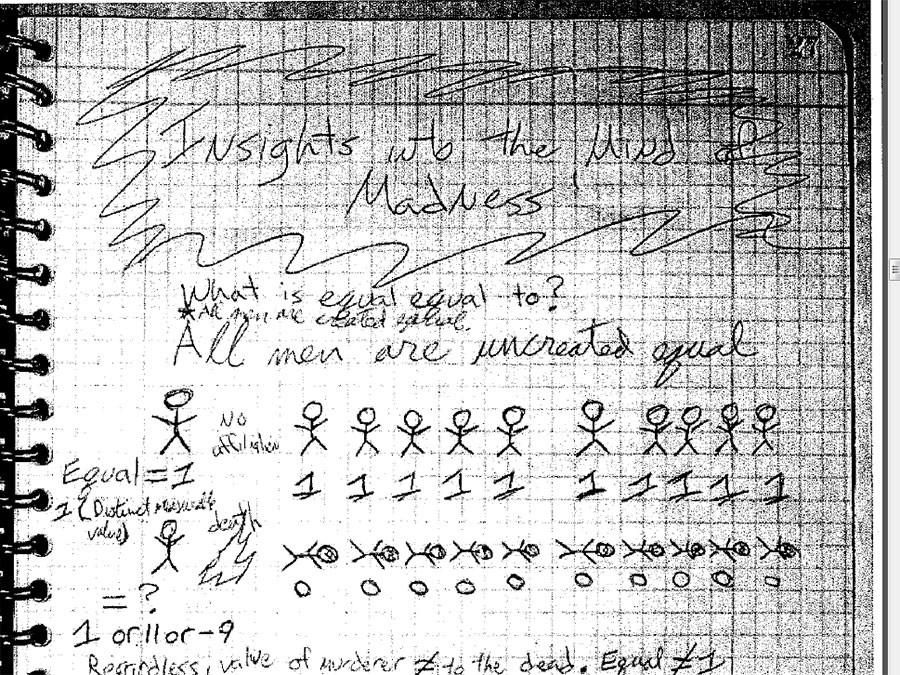 27
Insights into the Mind of
Madness
What is equal equal to?
*All men are created equal.
All men are uncreated equal
No
affiliation
1 1 1 1 1 1 1 1 1 1
Equal = 1
1 (Distinct measurable
value)
death
0 0 0 0 0 0 0 0 0 0
= ?
1 or 11 or -9
Regardless, value of murderer ≠ to the dead. Equal ≠ 1